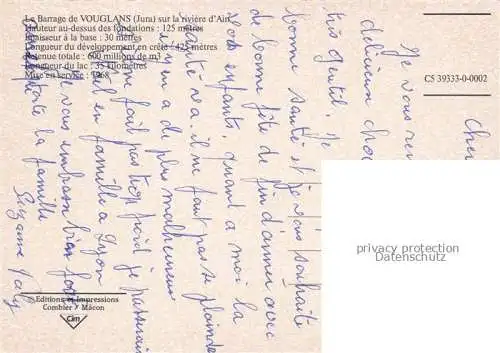 Le Barrage de VOUGLANS (Jura) sur la rivière d'Ain
Hauteur au-dessus des fondations : 125 mètres
Epaisseur à la base : 30 mètres
Longueur du développement en crête : 425 mètres
Retenue totale : 600 millions de m3
Longueur du lac : 35 kilomètres
Mise en service : 1968
CS 39333-0-0002
Cher
Je vous rem
délicieux choc
très gentil. Je
bonne santé et je vous souhaite
de bonne fête de fin d'année avec
vos enfants. Quant a moi la
santé va. il ne faut pas se plaindre
il y en a de plus malheureux
ne fait pas trop froid je passerai
Noël en famille a Lyon
Je vous embrasse bien fort
toute la famille
Suzanne
privacy protection
Datenschutz
Editions et Impressions
Combier Mâcon
Cim